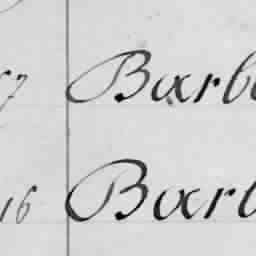 57 Barb
16 Barb